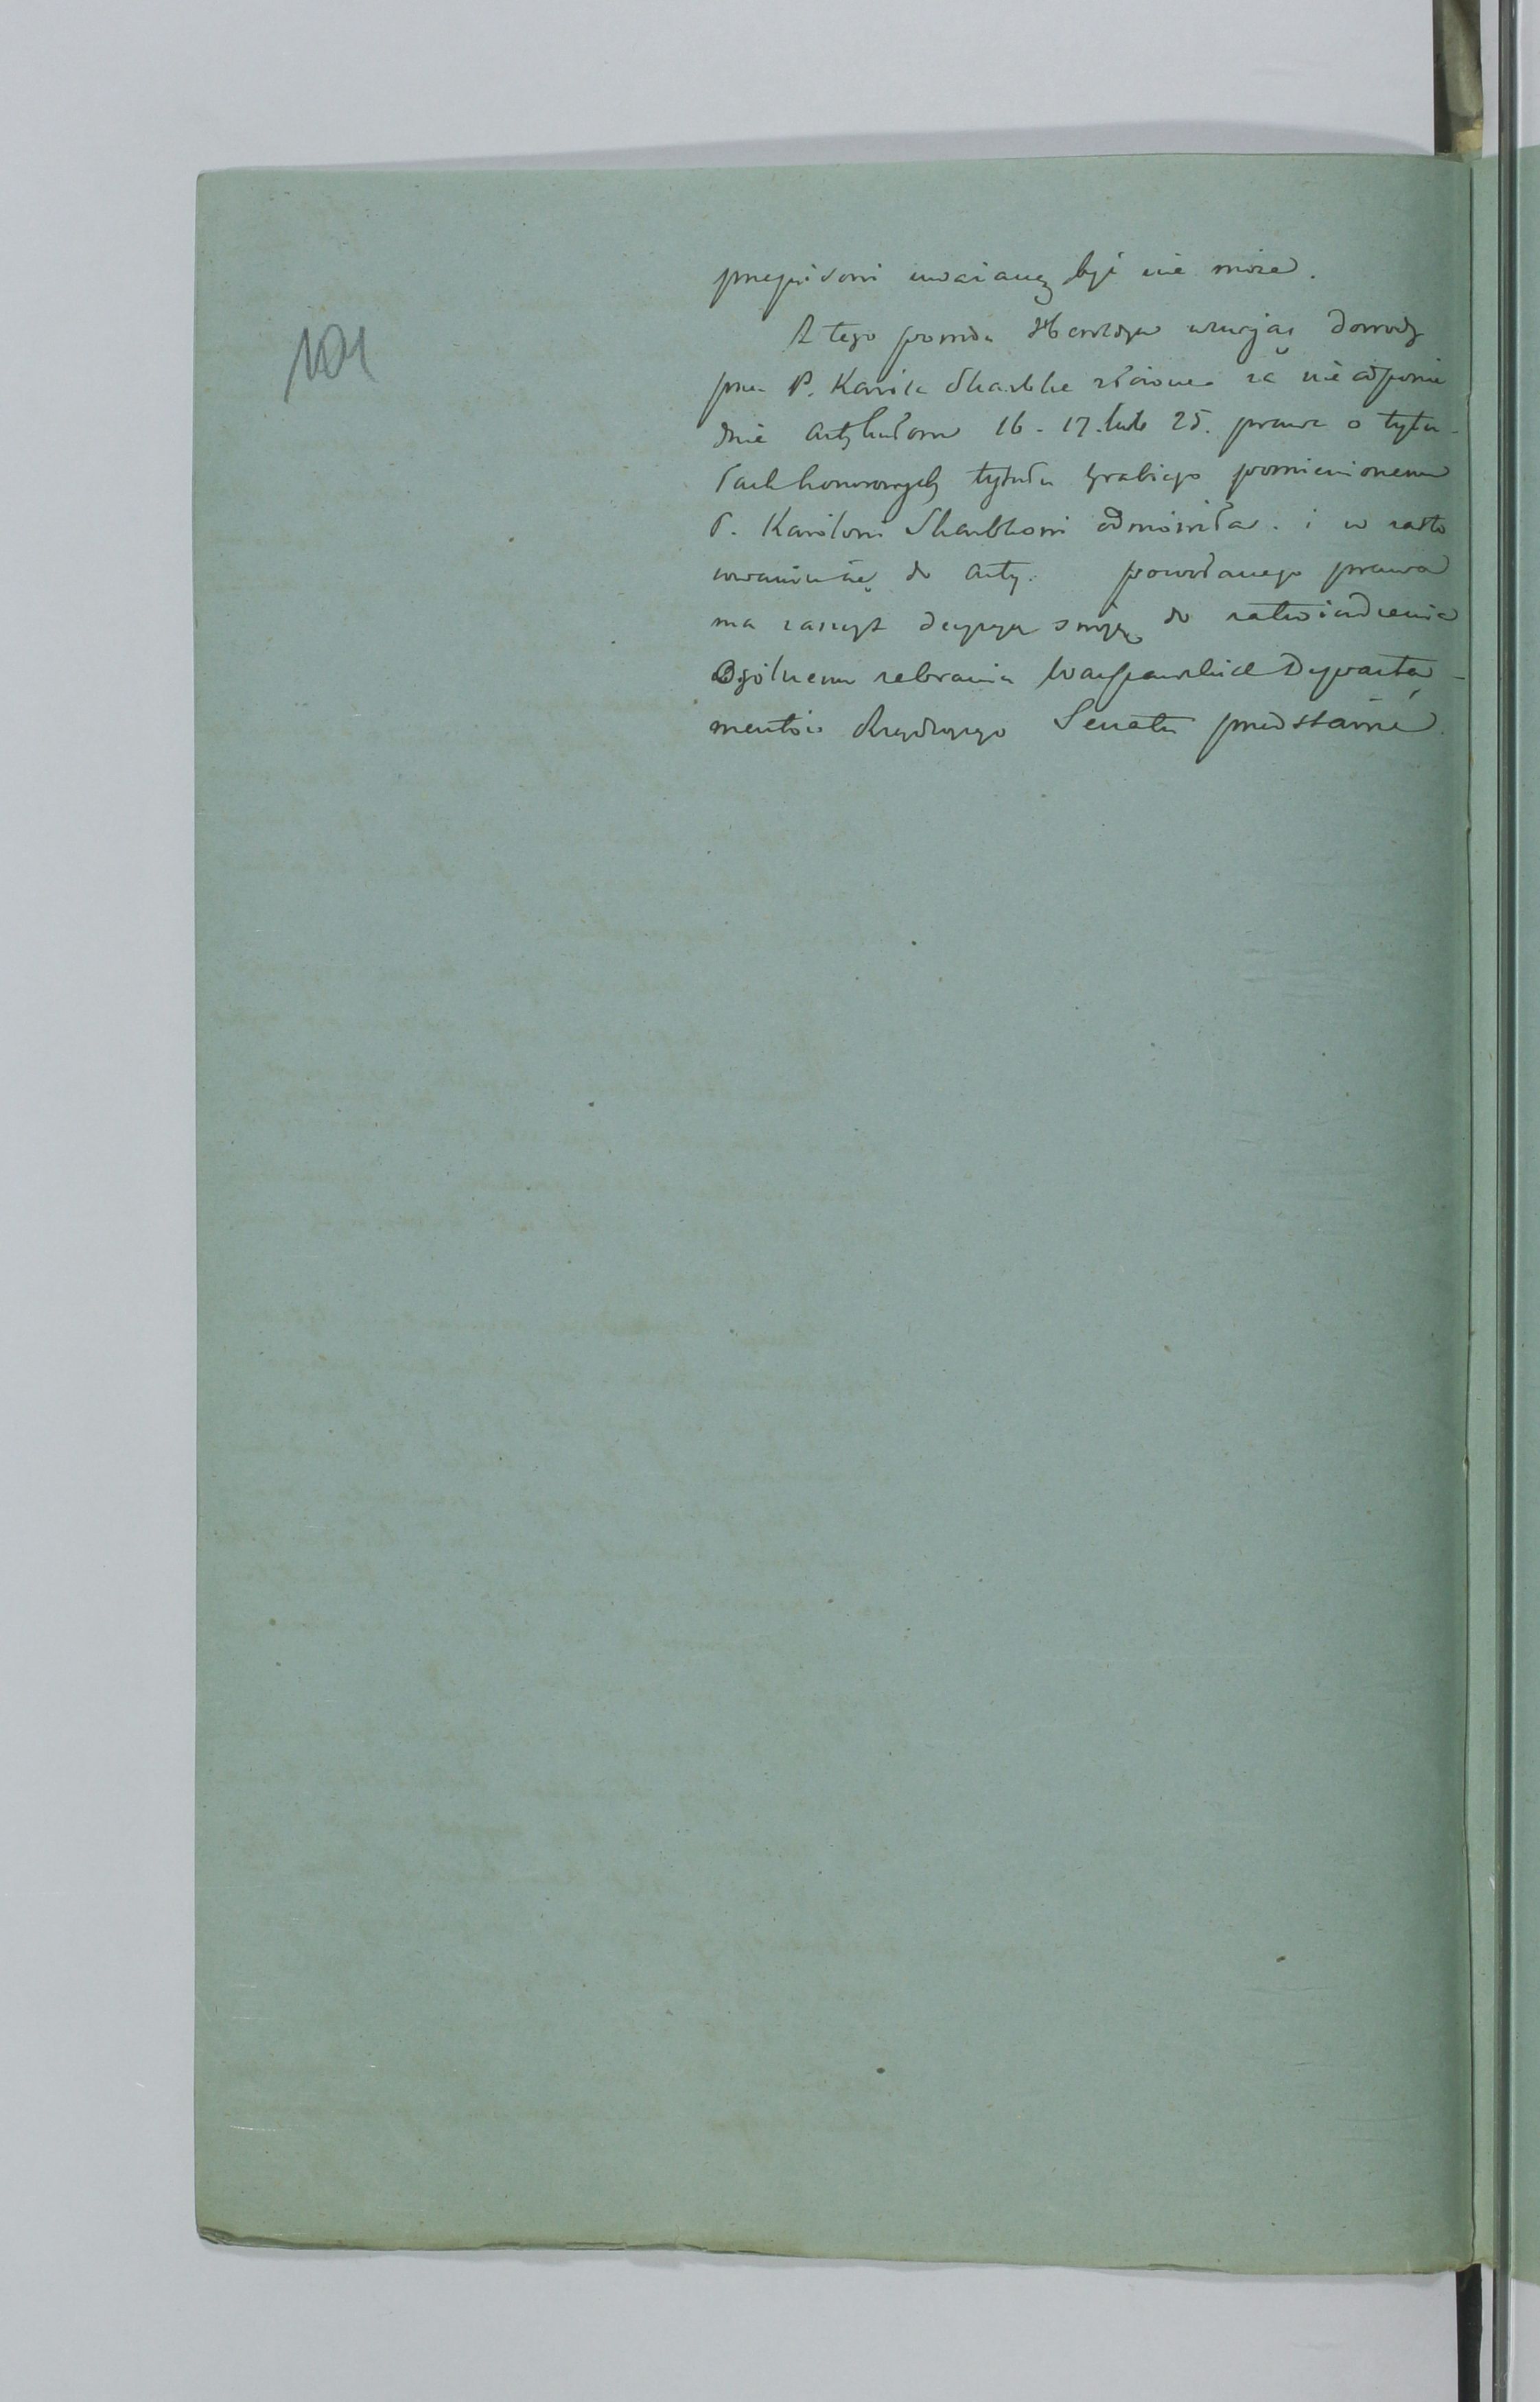 101
przepisowi uważaną być nie może.
Z tego powodu Heroldya uznając dowody
przez P. Karola Skarbka złożone za nie odpowie
dnie artykułom 16 - 17. lub 25. prawa o tytu-
łach honorowych tytułu hrabiego pomienionemu
P. Karolowi Skarbkowi odmówiła. i w zasto
sowaniu się do arty. powołanego prawa
ma zaszczyt decyzyą swoję do zatwierdzenia
Ogólnemu zebraniu Warszawskich Departa-
mentów Rządzącego Senatu przedstawić.